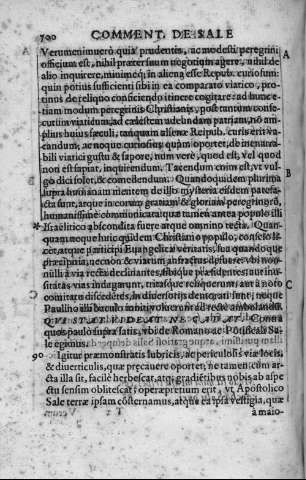 790 COMMENT. DE SALE
Verumenimverò quia prudentis, ac modesti peregrini
officium est, nihil præter suum negotium agere, nihil de
alio inquirere, minimeq; in aliena esse Repub. curiosum:
quin potius sufficient sibi in ea comparato viatico, pro-
tinus de reliquo conficiendo itinere cogitare: ad hunc e-
tiam modum peregrinis Christianis, post tantum conse-
cutum viaticum, ad cælestem adeundam patriam, nō am-
plius huius sæculi, tanquam alienæ Reipub. curis erit va-
candum, ac neque curiosius quàm oportet, de inenarra-
bili viatici gustu & sapore, num verè, quod est, vel quod
non est sapiat, inquirendum. Tacendum enim est, vt vul-
gò dici solet, & comedendum. Quandoquidem plurima
supra humanam mentem de illis mysteria eisdem patefa-
cta sunt, atque in eorum gratiam & gloriam peregrinorū,
humanissimè communicata: quæ tamen antea populo illi
* Israëlitico abscondita fuere atque omnino tecta. Quan-
quam neque huic quidem Christiano populo,
licet, atque participi Euangelicæ veritatis,
præcipitia, necnon & viarum anfractus
nulli à via recta declinantes,
sinistras vias indagarunt, tritasque reliquerunt, aut à noto
comitatu discedētes, in diuersoria demigrari sunt, neque
Paullino illi baculo
QVI STAT, VIDEAT NE CADAT.
quos paulò supra satis, vbi de Romano ac Pōtificali Sa-
le egimus.
90 Igitur præmonstratis lubricis, ac periculosis viæ locis,
& diuerticulis, quæ præcauere oportet, ne tamen cùm ar-
cta illa sit, facilè herbescat, atq; gradiētibus nobis ab aspe-
ctu sensim oblitescat: operæpretium erit, vt Apostolico
Sale terræ ipsam cōsternamus, atque ea ipsa vestigia, quæ
à maio-